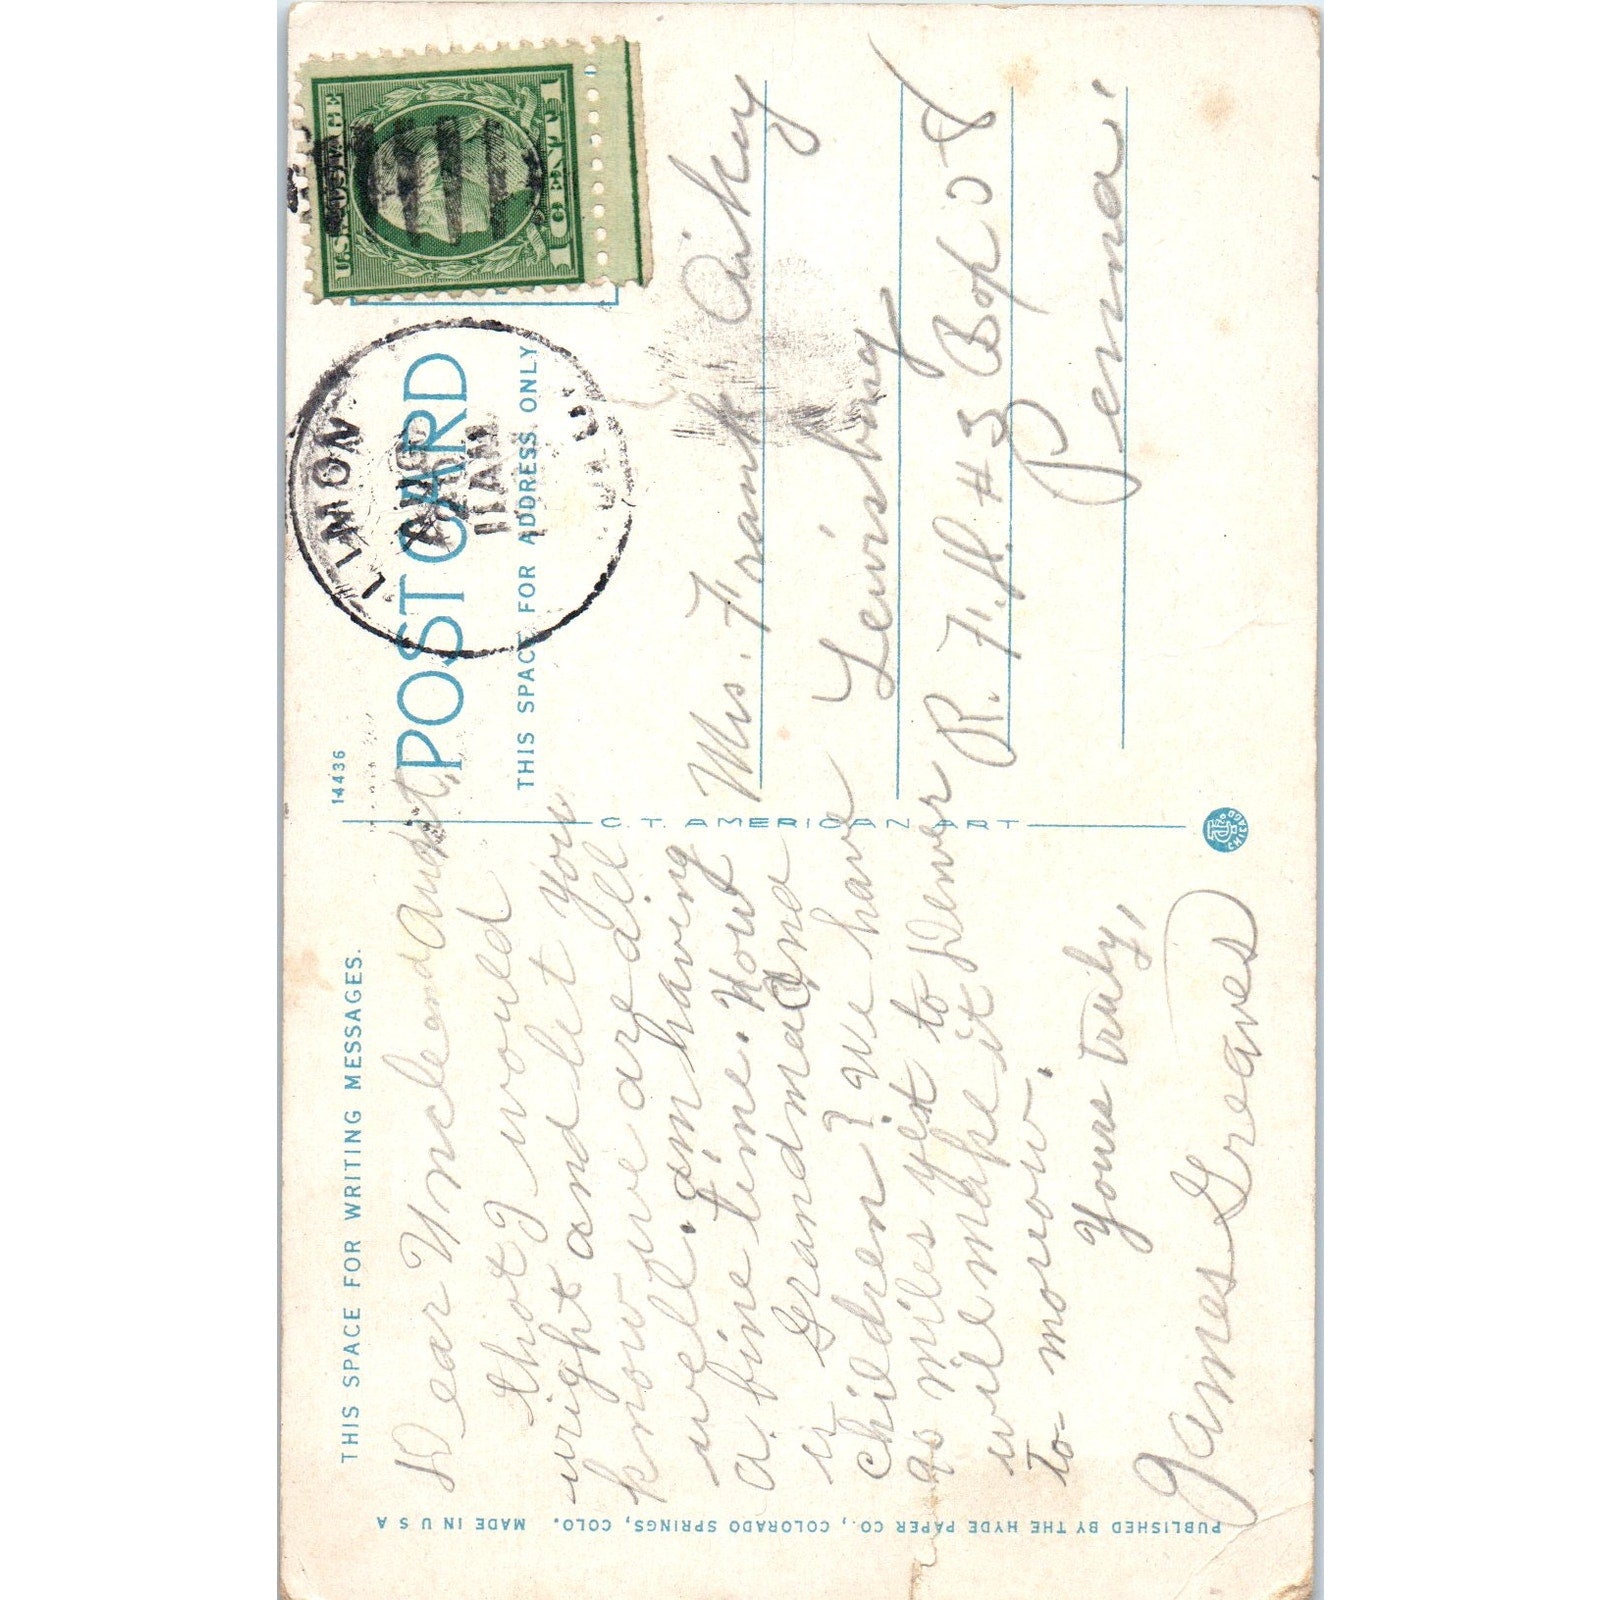 THIS SPACE FOR WRITING MESSAGES.
14436
POST CARD
THIS SPACE FOR ADDRESS ONLY
U.S. POSTAGE
1 CENT 1
LIMON
AUG
11 AM
C.T. AMERICAN ART
CHICAGO
PUBLISHED BY THE HYDE PAPER CO., COLORADO SPRINGS, COLO. MADE IN U S A
Dear Uncle and aunt,
thot I would
wright and let you
know we are all
well. am having
a fine time. How
is Grandma and
children? we have
90 miles yet to Denver
will make it
to-morow.
Yours truly,
James Greaves
Mrs. Frank Aikey
Lewisburg
R.F.D. #3 Box 58
Penna.